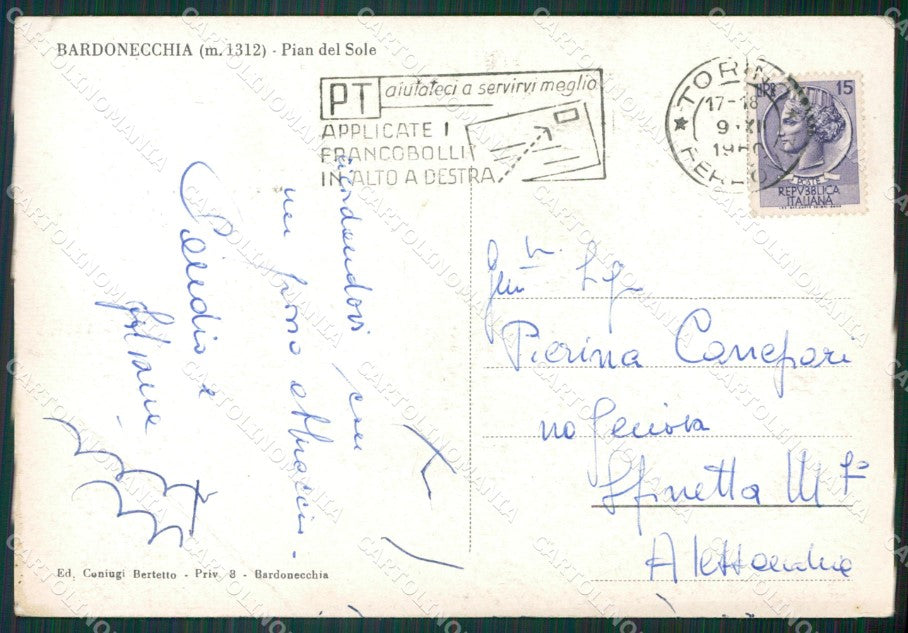 BARDONECCHIA (m. 1312) - Pian del Sole
PT aiutateci a servirvi meglio
APPLICATE I
FRANCOBOLLI
IN ALTO A DESTRA
TORINO
17-18
9 · XI
1960
FERR
LIRE 15
POSTE
REPVBBLICA
ITALIANA
ricordandovi con
un grosso abbraccio.
Claudio e
Pierina Canepari
via Genova
Spinetta M go
Alessandria
Ed. Coniugi Bertetto - Priv. 8 - Bardonecchia
CARTOLINOMANIA